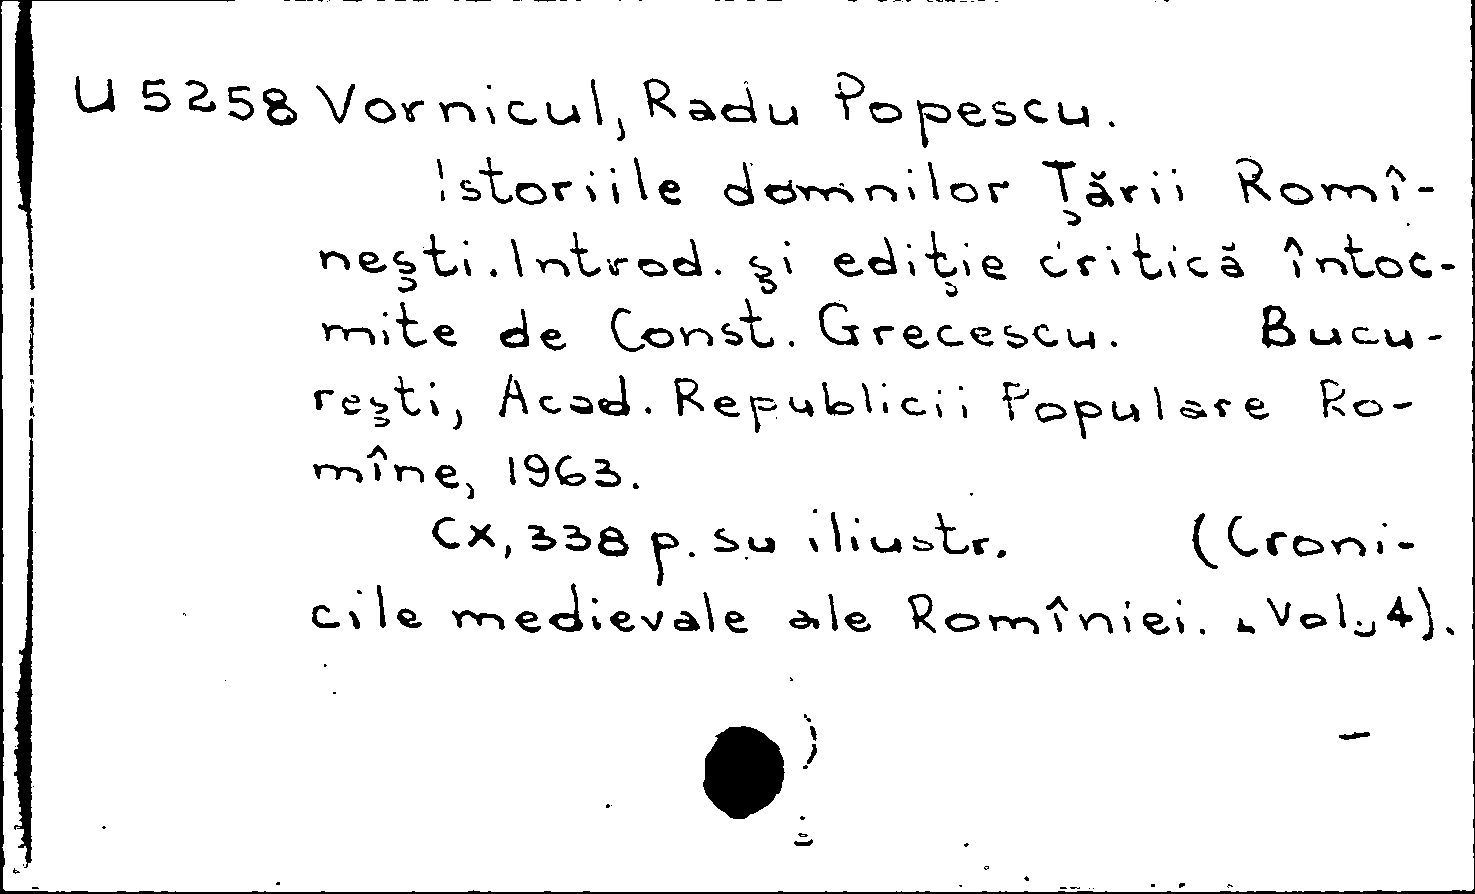 U 5258 Vornicul, Radu Popescu.
Istoriile domnilor Ţării Romî-
neşti. Introd. şi ediţie critică întoc-
mite de Const. Grecescu. Bucu-
reşti, Acad. Republicii Populare Ro-
mîne, 1963.
CX, 338 p. su iliustr. (Croni-
cile medievale ale Romîniei. Vol. 4).